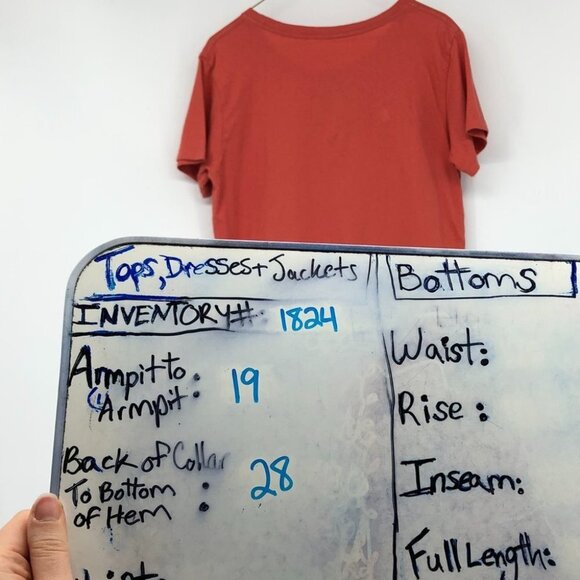 Tops, Dresses + Jackets
INVENTORY#: 1824
Armpit to
Armpit: 19
Back of Collar
To Bottom : 28
of Hem
Bottoms
Waist:
Rise:
Inseam:
Full Length: